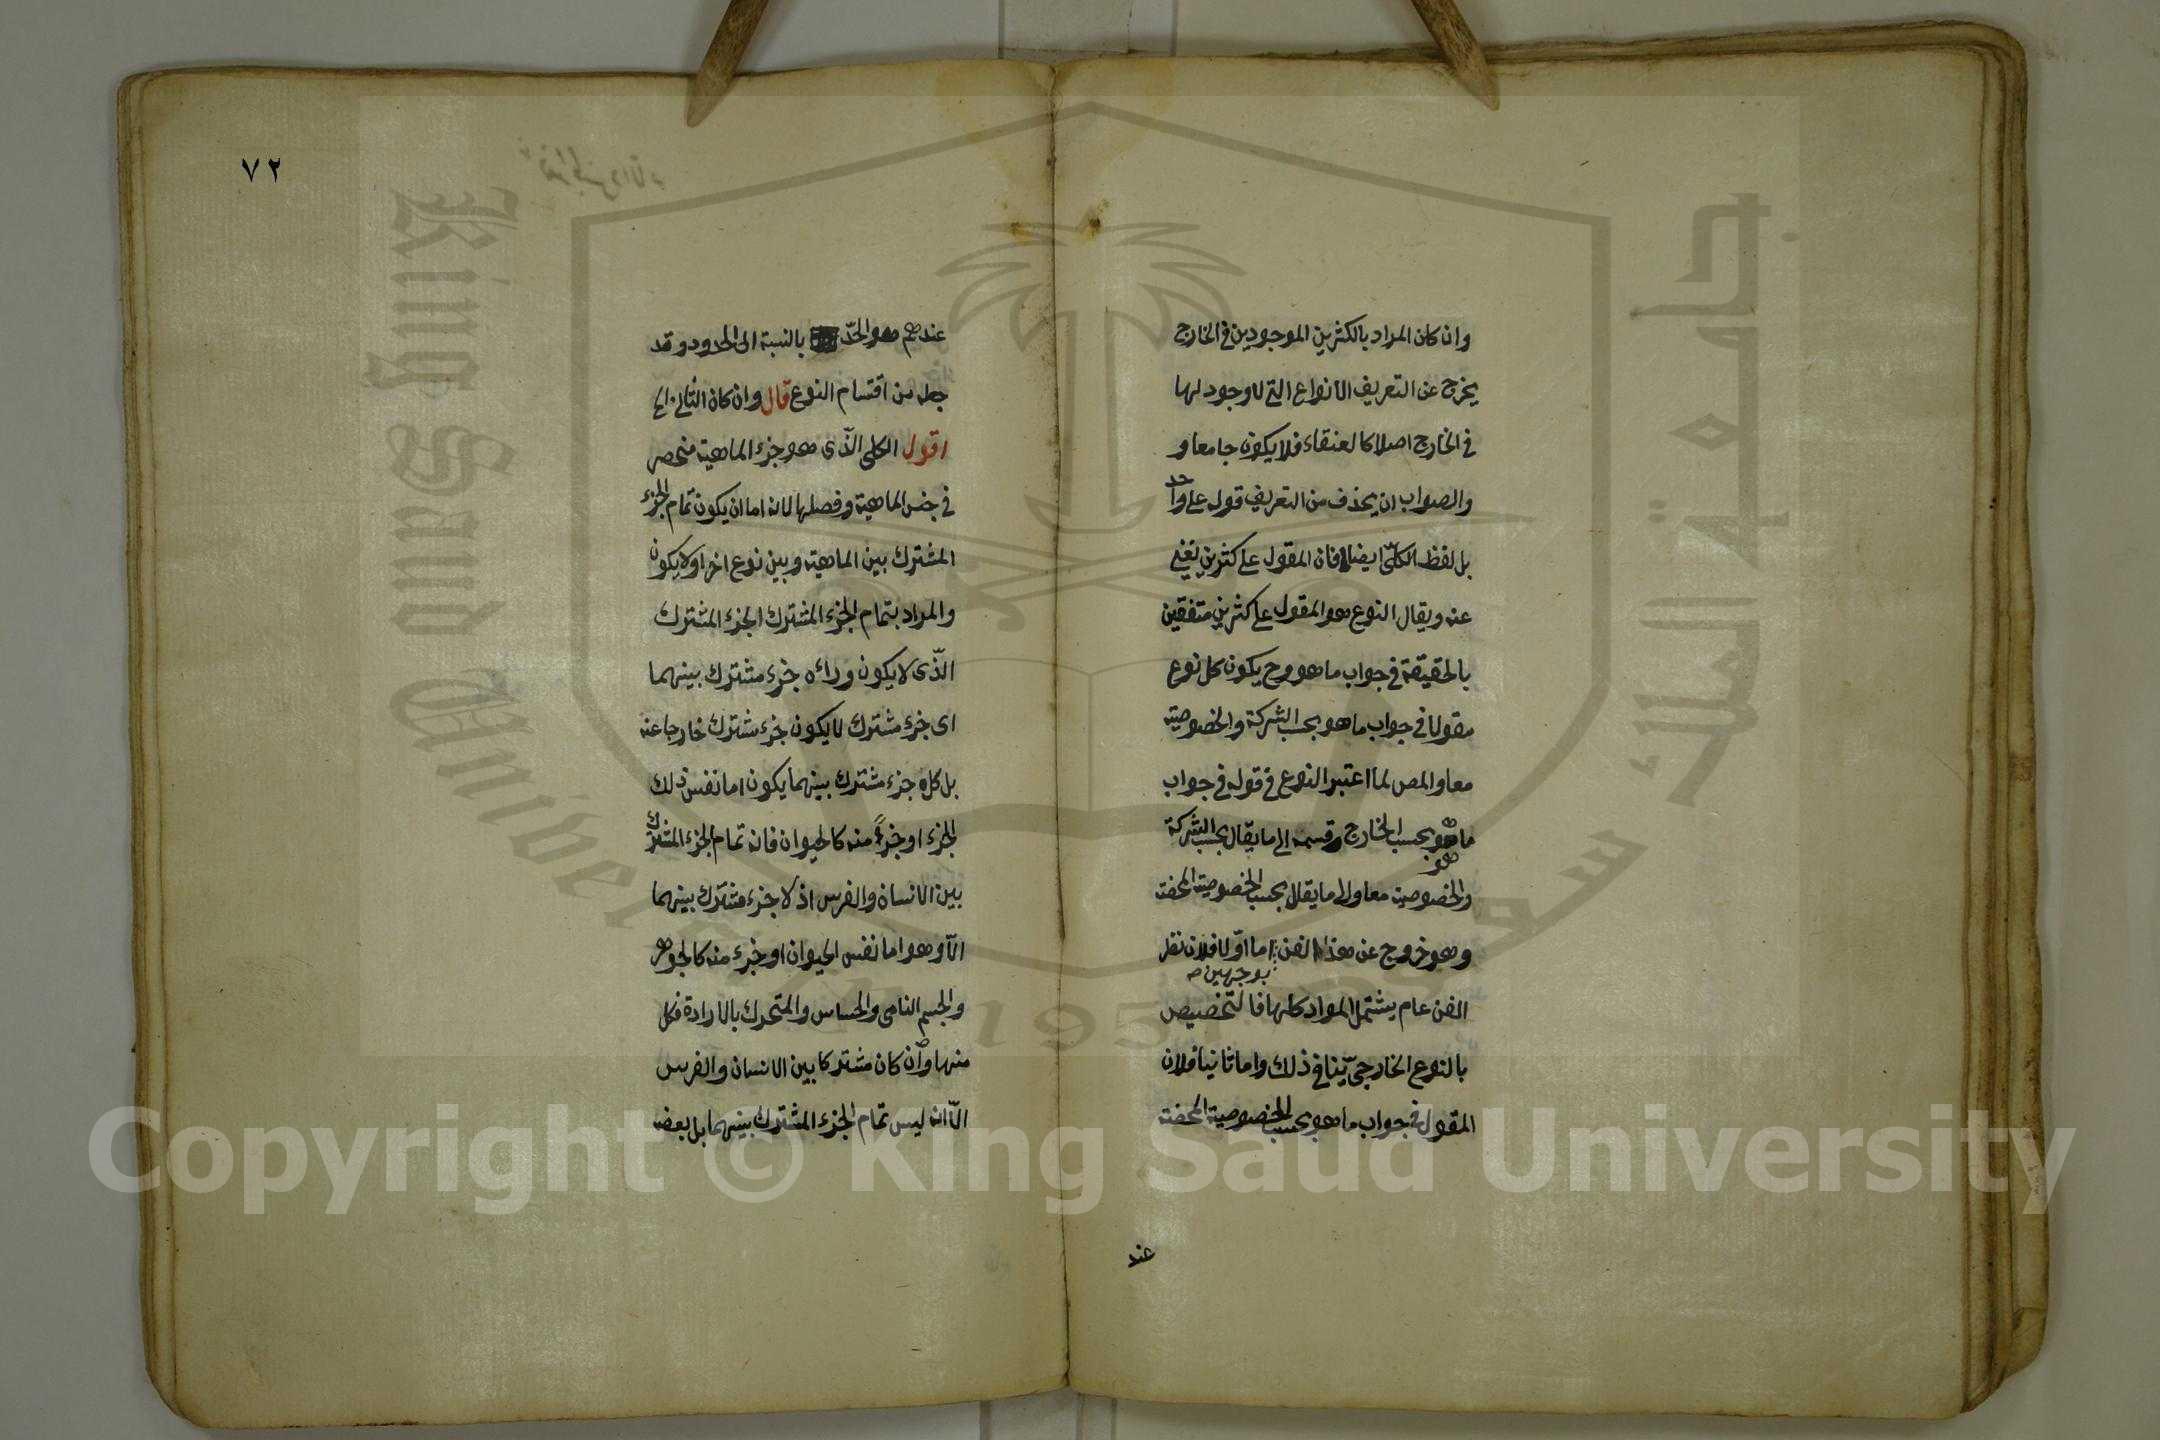 وان كان المراد بالكثرين الموجودين في الخارج
يخرج عن التعريف الانواع التي لا وجود لها
في الخارج اصلا كالعنقاء فلا يكون جامعا و
والصواب ان يحذف من التعريف قوله على واحد
بل لفظ الكلّى ايضا فان المقول على كثرين يغنى
عنه ويقال النوع هو المقول على كثرين متفقين
بالحقيقة في جواب ما هو وح يكون كل نوع
مقولا في جواب ما هو بحسب الشركة والخصوصية
معا والمص لما اعتبر النوع في قوله في جواب
ما هو بحسب الخارج قسمه الى ما يقال بحسب الشركة
والخصوصية معا والى ما يقال بحسب الخصوصية المحضة
وهو خروج عن هذا الفن اما اوّلا فلان نظر
بوجهين
الفن عام يشتمل المواد كلها فالتخصيص
بالنوع الخارجىّ ينافى ذلك واما ثانيا فلان
المقول في جواب ما هو بحسب الخصوصية المحضة
عند
٧٢
عندهم هو الحدّ بالنسبة الى المحدود وقد
جعله من اقسام النوع قال وان كان الثانى الخ
اقول الكلى الّذى هو جزء الماهية منحصر
في جنس الماهية وفصلها لانه اما ان يكون تمام الجزء
المشترك بين الماهية وبين نوع اخر او لا يكون
والمراد بتمام الجزء المشترك الجزء المشترك
الّذى لا يكون وراءه جزء مشترك بينهما
اى جزء مشترك لا يكون جزء مشترك خارجا عنه
بل كل جزء مشترك بينهما يكون اما نفس ذلك
الجزء او جزءً منه كالحيوان فانه تمام الجزء المشترك
بين الانسان والفرس اذ لا جزء مشترك بينهما
الّا وهو اما نفس الحيوان او جزء منه كالجوهر
والجسم النامى والحساس والمتحرك بالارادة فكل
منها وان كان مشتركا بين الانسان والفرس
الّا انه ليس تمام الجزء المشترك بينهما بل بعضه
Copyright © King Saud University
King Saud University
جامعة الملك سعود
1957